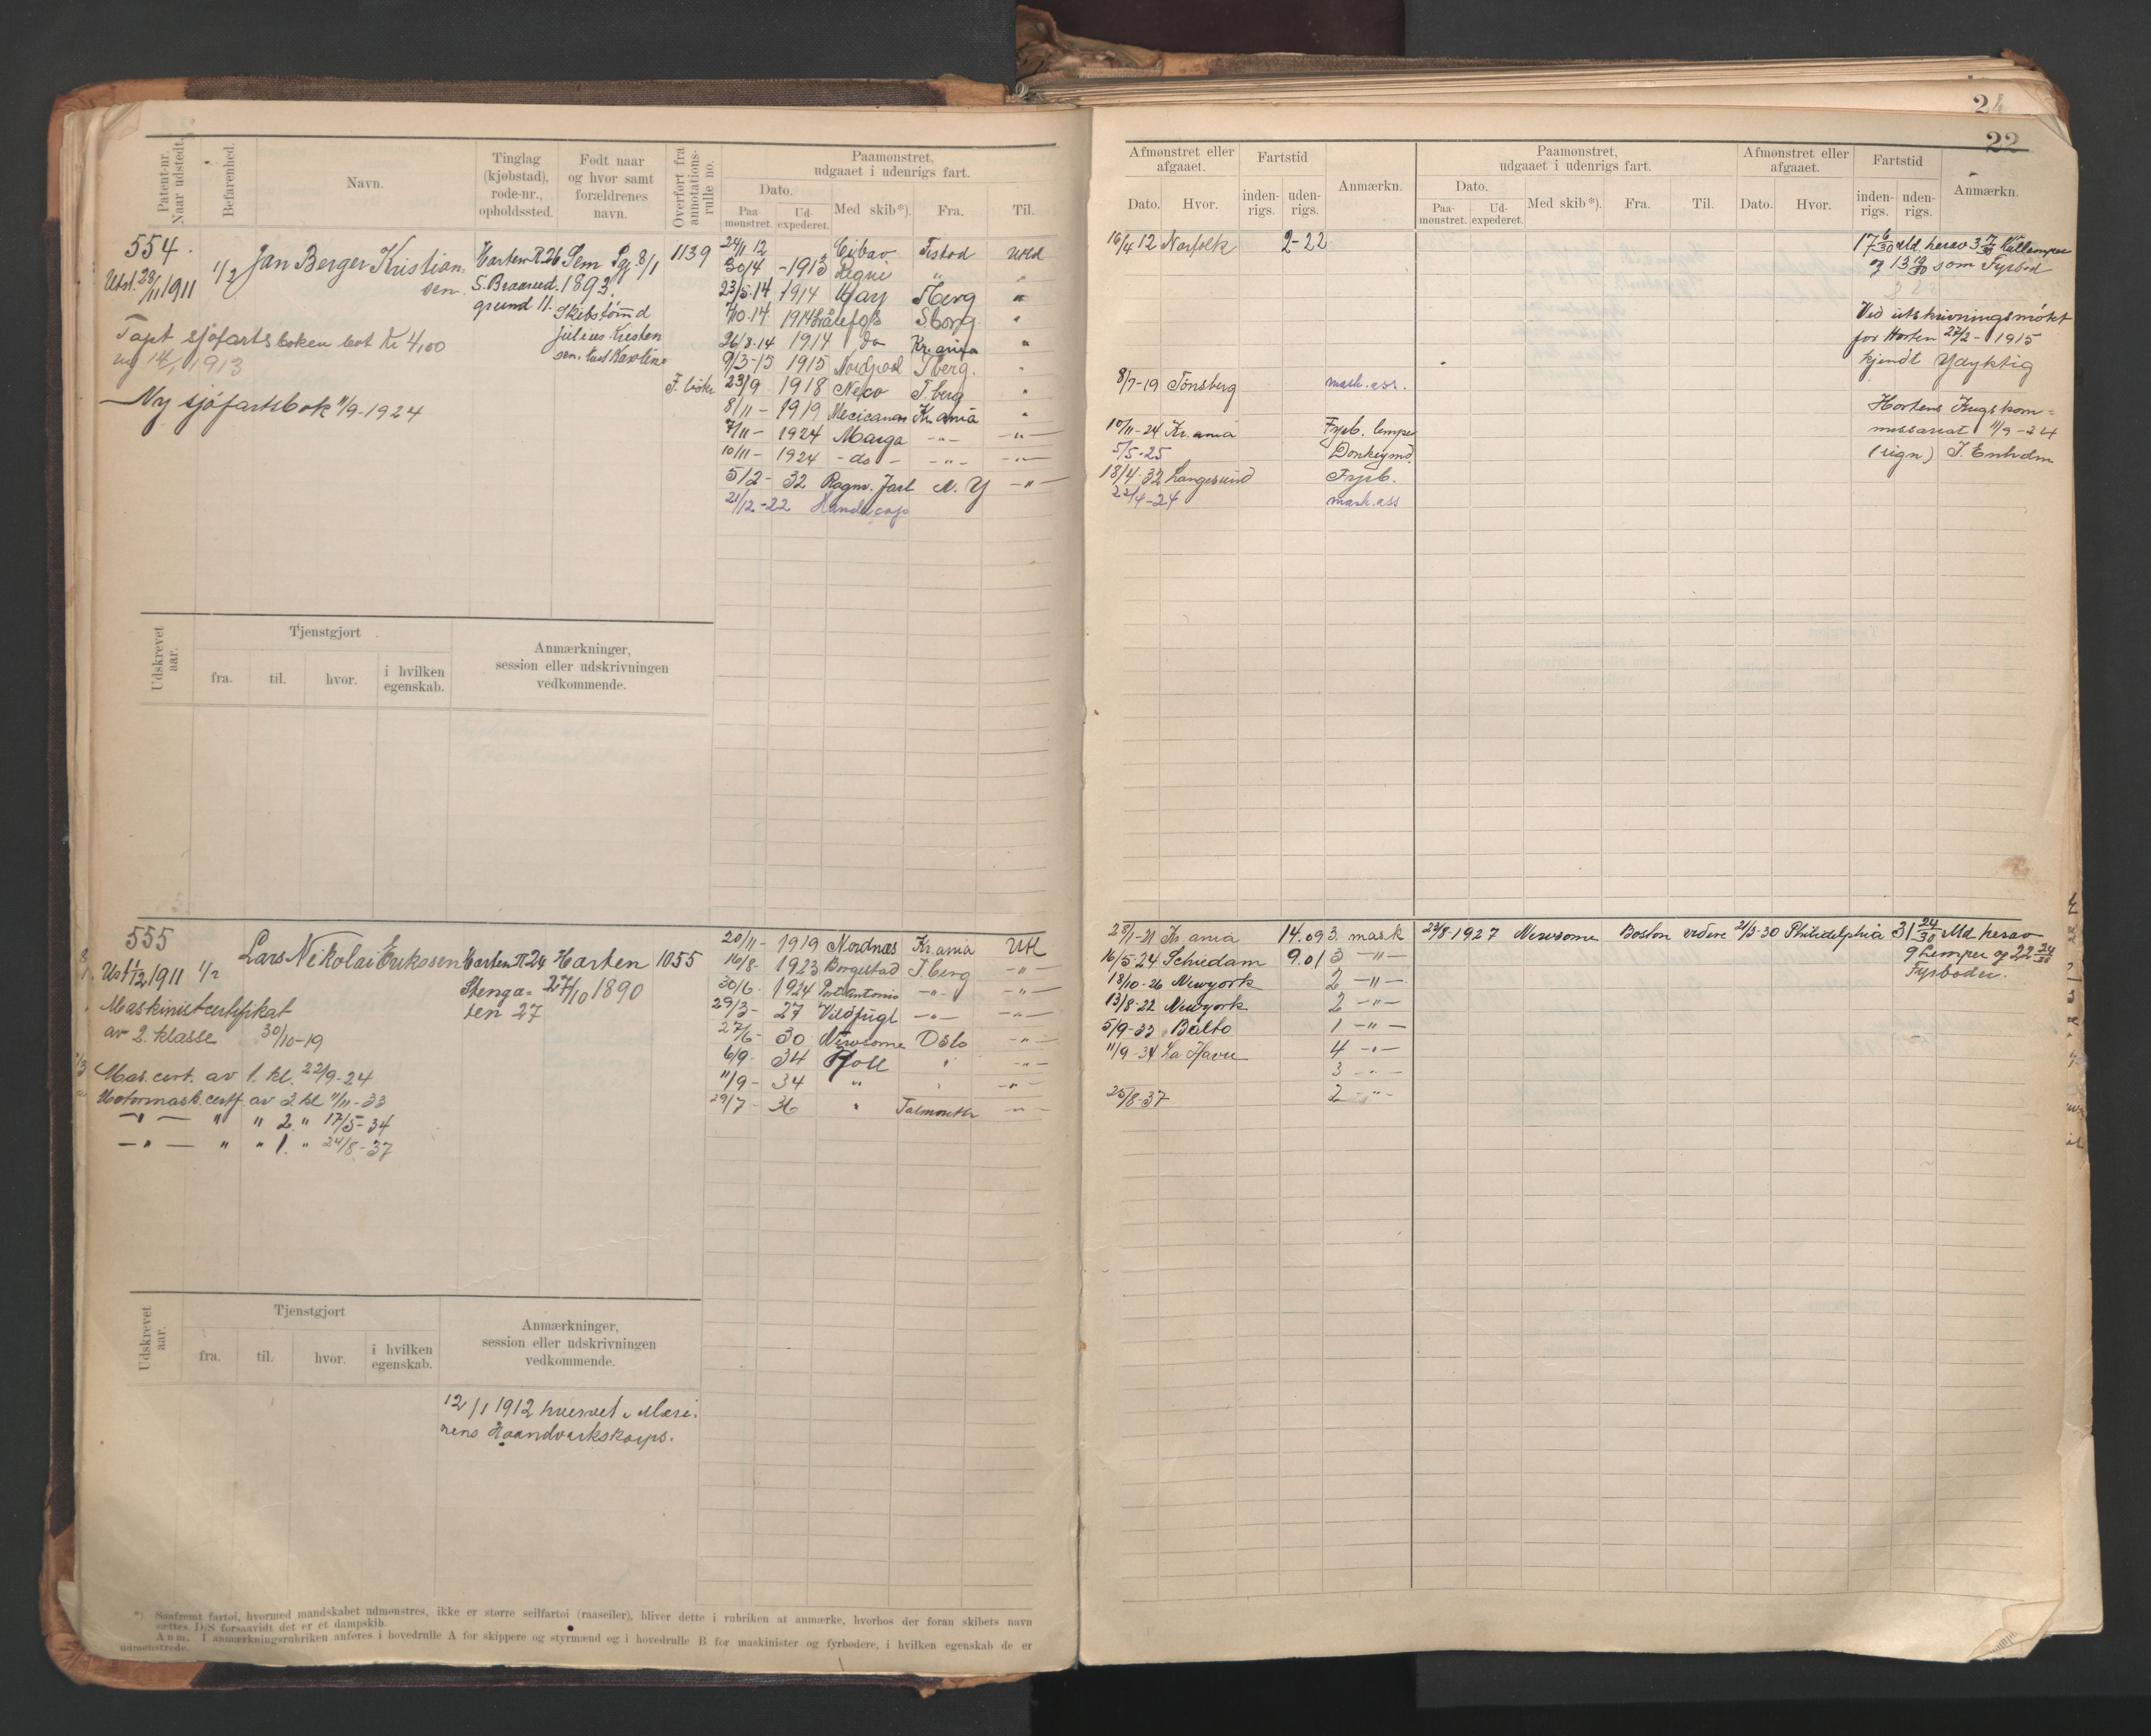 22
Patent-nr. Naar udstedt.
Befarenhed.
Navn.
Tinglag (kjøbstad), rode-nr., opholdssted.
Født naar og hvor samt forældrenes navn.
Overført fra annotations-rulle no.
Paamønstret, udgaaet i udenrigs fart.
Dato.
Paa-mønstret.
Ud-expederet.
Med skib*).
Fra.
Til.
Afmønstret eller afgaaet.
Dato.
Hvor.
Fartstid
inden-rigs.
uden-rigs.
Anmærkn.
Paamønstret, udgaaet i udenrigs fart.
Dato.
Paa-mønstret.
Ud-expederet.
Med skib*).
Fra.
Til.
Afmønstret eller afgaaet.
Dato.
Hvor.
Fartstid
inden-rigs.
uden-rigs.
Anmærkn.
554.
Utst. 28/11 1911
1/2
Jan Berger Kristian-
sen.
Horten R 26
S. Braarud.
grund 11.
Sem Pg. 8/1
1893.
Skibstømd
Julius Kristen
sen.
1139
Tapt sjøfartsboken bot Kr 4,00
1913
Ny sjøfartsbok 11/9-1924
24/1 12 Fstad Utld
30/4 -1913
23/5.14 1914 May
7/10.14 1914 Sborg
26/8.14 1914 do Kr.ania
9/3-15 1915 Nordpol Tberg.
23/9 1918 Neco T.berg
8/11 - 1919 Mexicanas Kr. ania
7/11 - 1924 Marga
10/11 - 1924 - do -
5/2 - 32 Ragnv. Jarl N. Y
21/12.-22
16/4 12 Norfolk 2-22
8/7-19 Tønsberg mask. ass.
10/11-24 Kr.ania Fyrb. lemper
5/5-25 Donkeymd.
18/4.32 Langesund Fyrb.
22/4-24 mask.ass
17 6/30 Md. herav 3 Kullemper
og 13 som Fyrbød
Ved utskrivningsmøtet
for Horten 27/2 - 1915
kjendt Udyktig
Hortens Krigskom=
missariat 11/9-24
(sign) J. Enholm
Udskrevet aar.
Tjenstgjort
fra.
til.
hvor.
i hvilken egenskab.
Anmærkninger, session eller udskrivningen vedkommende.
555
Ust 1/12 1911 1/2
Lars Nikolai Eriksen
Horten R 24
Stenga-
ten 27
Horten
27/10 1890
1055
Maskinistcertifikat
av 2. klasse 30/10-19
Mas. cert. av 1. kl. 22/9-24
Motormask. certf. av 3 kl 11/11-33
— " — " " 2. " 17/5-34
— " — " " 1. " 24/8-37
20/11 - 1919 Nordnæs Kr.ania Utl
16/8 - 1923 Borgestad T.berg — " —
30/6 - 1924 Port Antonio — " — — " —
29/3 - 27 Vildfugl — " — — " —
27/6 - 30 Newsome Oslo — " —
6/9 - 34 Troll " — " —
11/9 - 34 " " — " —
29/7 - 36 " Falmouth — " —
28/1-21 Kr ania 14.09 3. mask
16/5-24 Schiedam 9.01 3 — " —
18/10-26 Newyork 2 — " —
13/8-22 Newyork 2 — " —
5/9-33 Balto 1 — " —
11/9-34 La Havre 4 — " —
3 — " —
25/8-37 2 — " —
23/8-1927 Newsome Boston videre 21/3-30 Philidelphia
31 24/30 Md herav
9 Lemper og 22 24/30
Fyrbøder.
Udskrevet aar.
Tjenstgjort
fra.
til.
hvor.
i hvilken egenskab.
Anmærkninger, session eller udskrivningen vedkommende.
12/1 1912 hvervet i Mari-
nens Haandverkskorps.
*) Saafremt fartøi, hvormed mandskabet udmønstres, ikke er større seilfartøi (raaseiler), bliver dette i rubriken at anmærke, hvorhos der foran skibets navn
sættes D/S forsaavidt det er et dampskib.
Anm. I anmærkningsrubriken anføres i hovedrulle A for skippere og styrmænd og i hovedrulle B for maskinister og fyrbødere, i hvilken egenskab de er
udmønstrede.